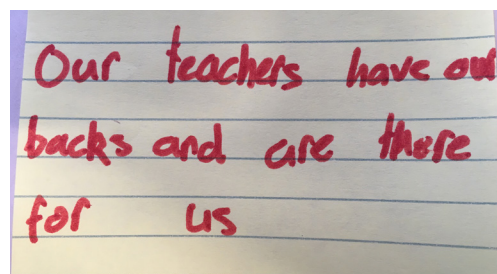 Our teachers have our
backs and are there
for us